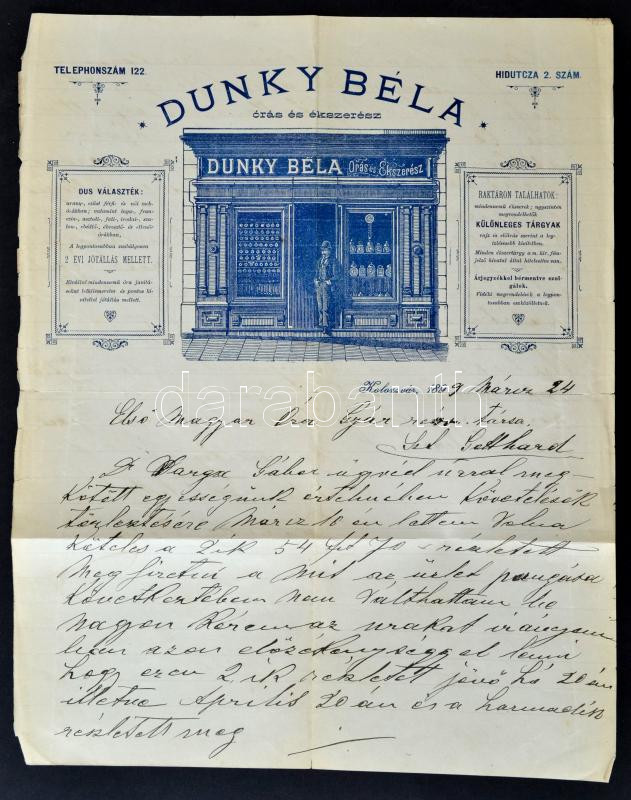 TELEPHONSZÁM 122.
HIDUTCZA 2. SZÁM.
DUNKY BÉLA
órás és ékszerész
DUNKY BÉLA Órás és Ékszerész
DUS VÁLASZTÉK:
arany-, ezüst férfi- és női zseb-
órákban; valamint inga-, fran-
czia-, asztali-, fali-, irodai-, sza-
lon-, ébresztő- és ellenőr-
órákban,
A legpontosabban szabályozva
2 ÉVI JÓTÁLLÁS MELLETT.
Elvállal mindennemű óra javítá-
sokat lelkiismeretes és pontos ki-
vitellel jótállás mellett.
RAKTÁRON TALÁLHATÓK:
mindennemű ékszerek; ugyszintén
megrendelhetők
KÜLÖNLEGES TÁRGYAK
rajz és előírás szerint a leg-
izlésesebb kivitelben.
Minden ékszertárgy a m. kir. fém-
jelző hivatal által hitelesítve van.
Árjegyzékkel bérmentve szol-
gálok.
Vidéki megrendelések a legpon-
tosabban eszközöltetnek.
Kolozsvár, 1899 Márcz 24
Első Magyar Óra Gyár társa.
Szt Gotthard
Dr Varga Gábor ügyvéd urral meg
kötött egyességünk értelmében követelésök
törlesztésére Márcz 10 én lettem volna
köteles a 2 ik 54 frt 70 részletett
meg fizetni a mit az üzlet pangása
következtében nem válthattam be
nagyon kérem az urakat irányom
ban azon előzékenységgel lenni
hogy ezen 2 ik részletett jövő hó 20 án
illetve Április 20 án és a harmadik
részletett meg
darabanth